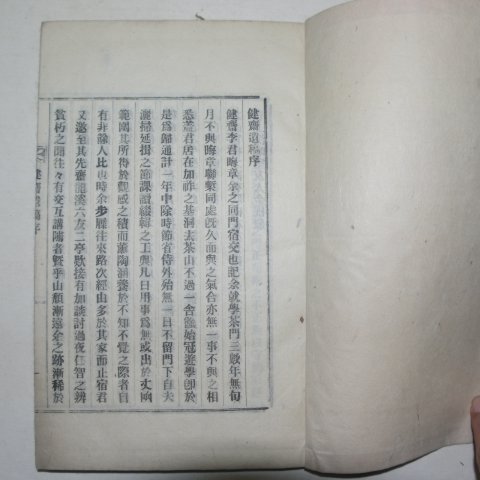 健齋遺稿序
健齋李君晦章余之同門宿交也記余就學茶門三數年無旬
月不與晦章聯槧同處旣久而與之氣合亦無一事不與之相
悉蓋君居在加祚之基洞去茶山不過一舍
始冠遊學卽於
是爲歸通計一年中除時節省侍外殆無一日不留門下自夫
灑掃延揖之節課讀綴輯之工與凡日用事爲無或出於丈函
範圍其所得於觀感之積而薰陶涵養於不知不覺之際者自
有非餘人比
時余步屧往來路次經由多於其家而止宿君
又邀至其先齋龍溪六友二亭歡接有加談討過夜仁智之辨
貧朽之
往々有交互講
者曁乎山頹漸遠余之跡漸稀於
健齋遺稿序